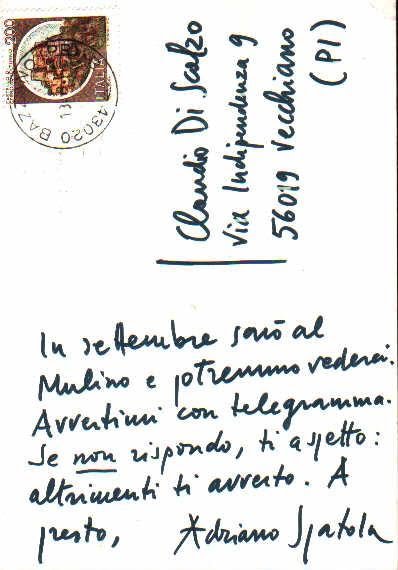 200
ITALIA
43020 BAZ
Claudio Di Scalzo
Via Indipendenza 9
56019 Vecchiano
(PI)
In settembre sarò al
Mulino e potremmo vederci.
Avvertimi con telegramma.
Se non rispondo, ti aspetto:
altrimenti ti avverto. A
presto, Adriano Spatola